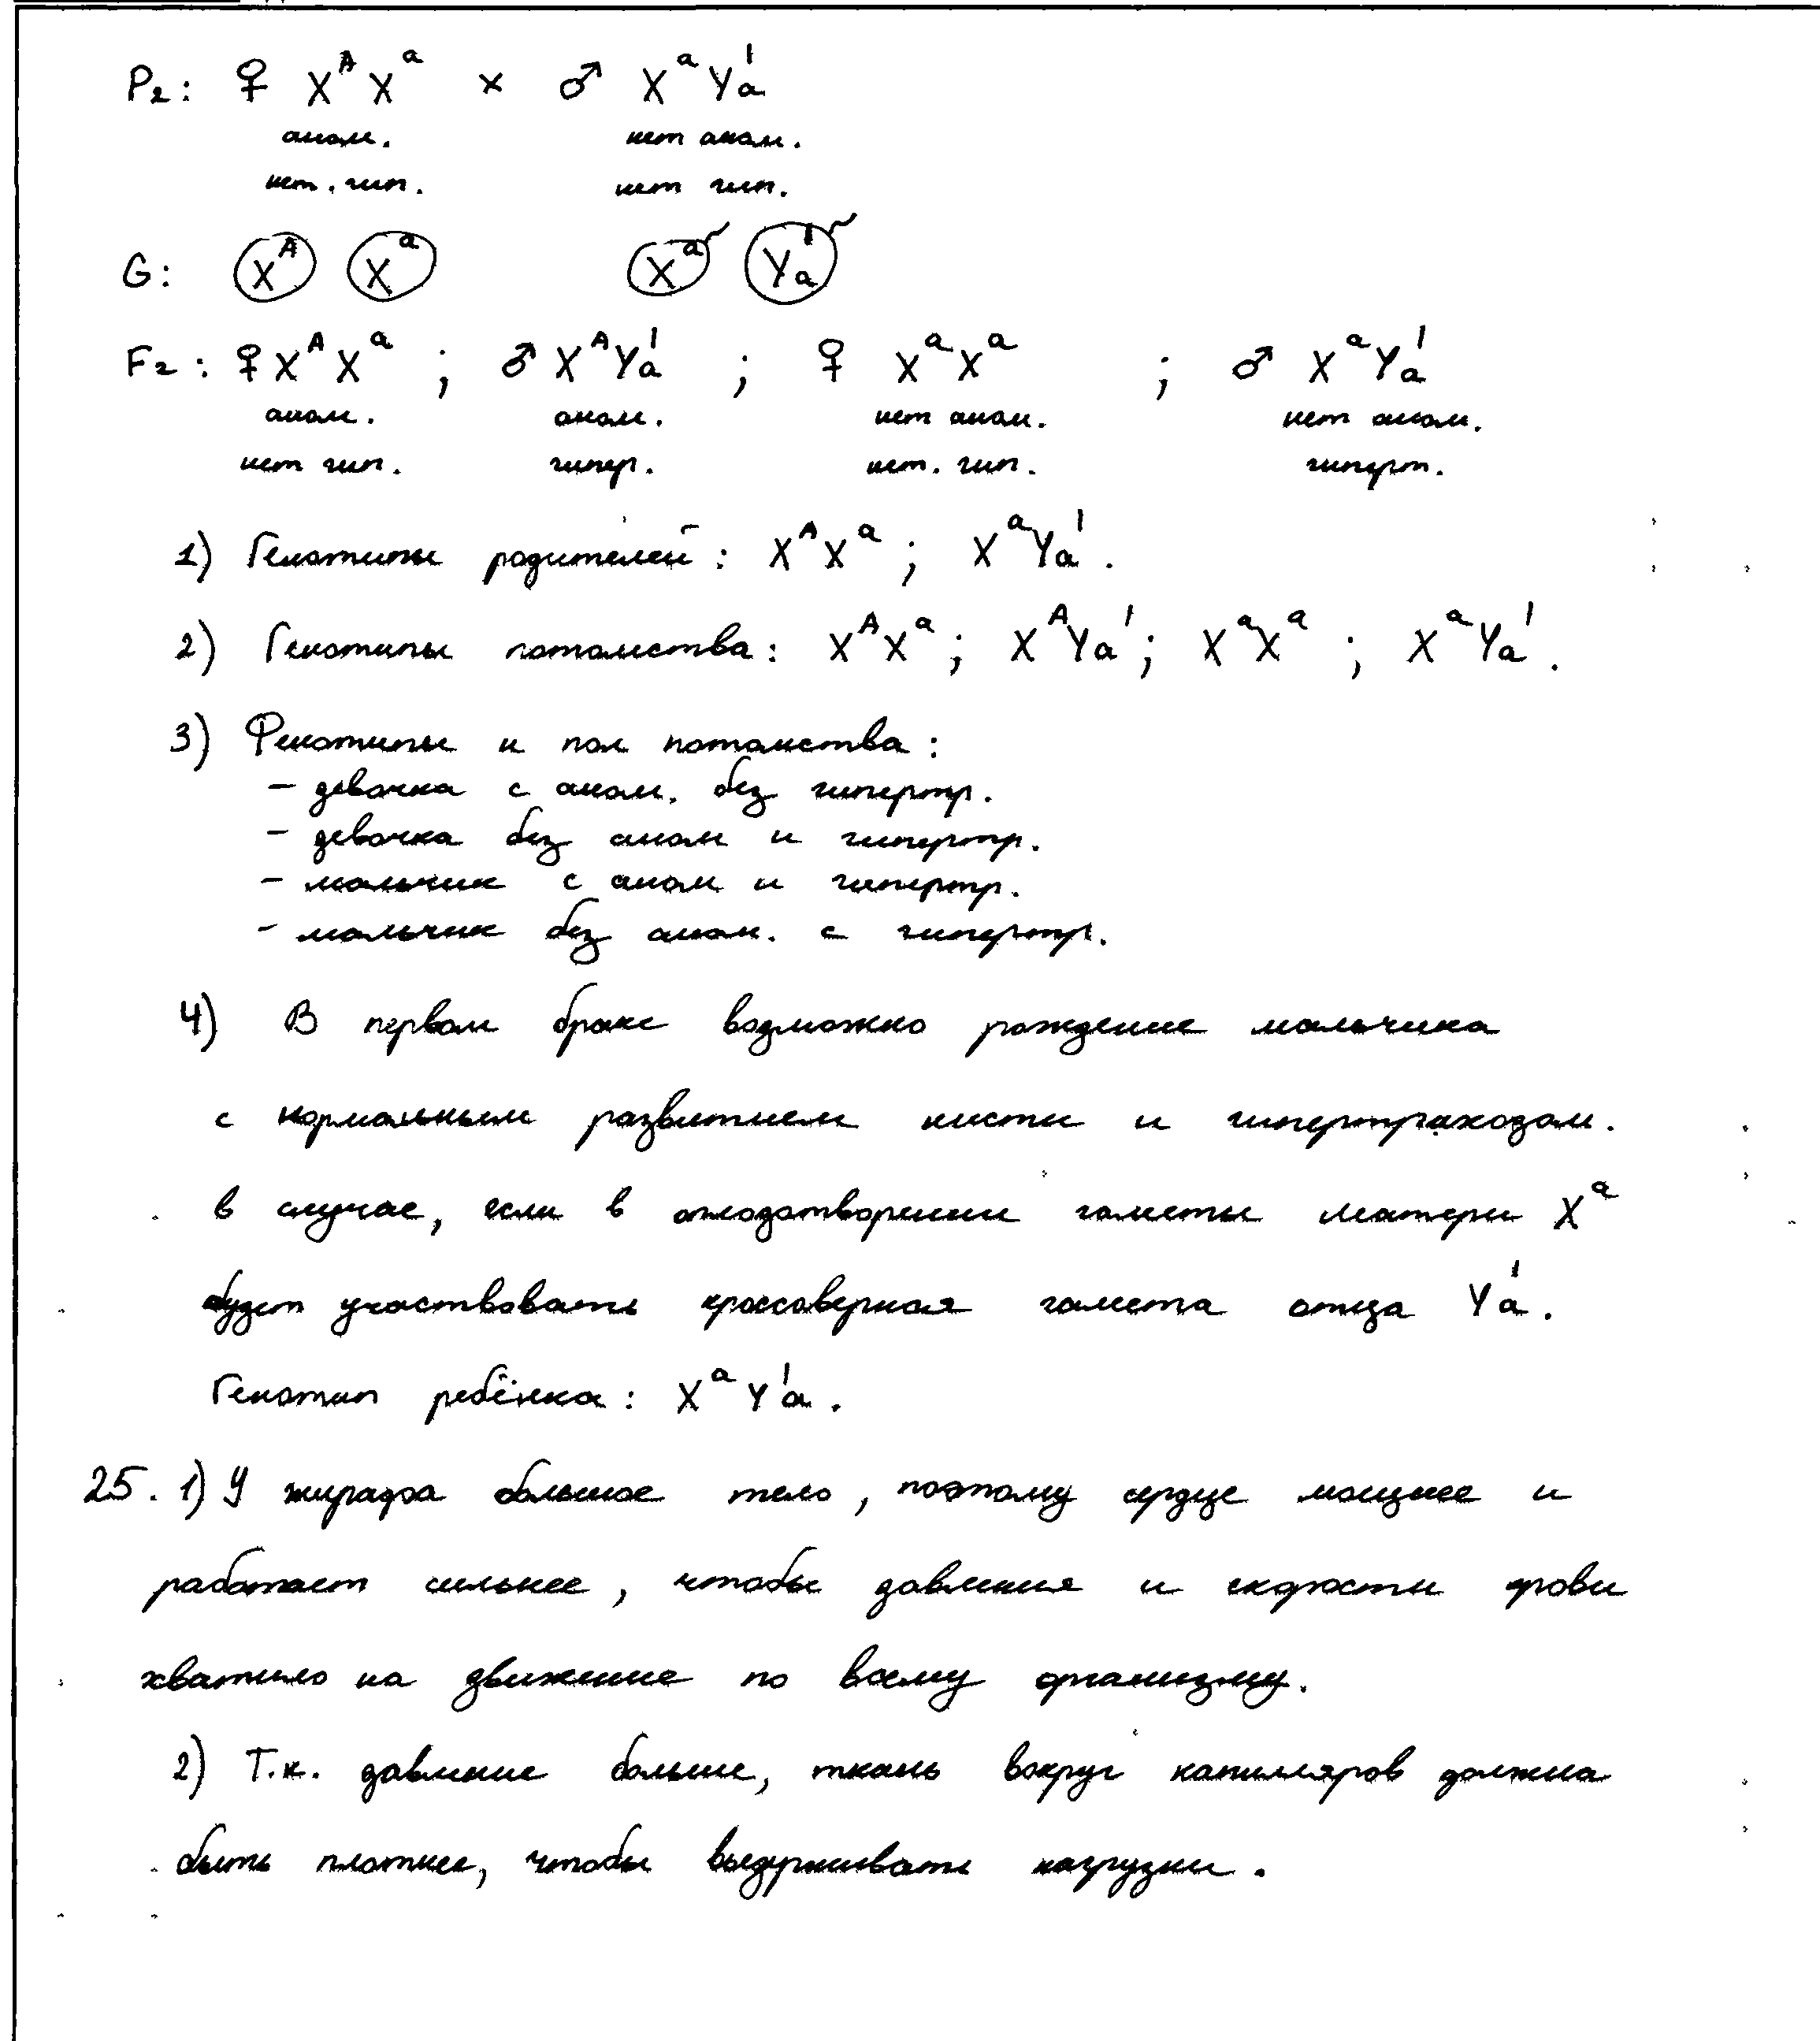 P₂: ♀ XᴬXᵃ × ♂ XᵃYₐ¹
аном. нет аном.
нет. гип. нет гип.
G: Xᴬ Xᵃ Xᵃ Yₐ¹
F₂: ♀ XᴬXᵃ ; ♂ XᴬYₐ¹ ; ♀ XᵃXᵃ ; ♂ XᵃYₐ¹
аном. аном. нет аном. нет аном.
нет гип. гипер. нет. гип. гиперт.
1) Генотипы родителей: XᴬXᵃ ; XᵃYₐ¹.
2) Генотипы потомства: XᴬXᵃ ; XᴬYₐ¹ ; XᵃXᵃ ; XᵃYₐ¹.
3) Фенотипы и пол потомства:
– девочка с аном. без гипертр.
– девочка без аном и гипертр.
– мальчик с аном и гипертр.
– мальчик без аном. с гипертр.
4) В первом браке возможно рождение мальчика
с нормальным развитием кисти и гипертрихозом.
в случае, если в оплодотворении гаметы матери Xᵃ
будет участвовать кроссоверная гамета отца Yₐ¹.
Генотип ребёнка: XᵃYₐ¹.
25. 1) У жирафа большое тело, поэтому сердце мощнее и
работает сильнее, чтобы давления и скорости крови
хватило на движение по всему организму.
2) Т.к. давление больше, ткань вокруг капилляров должна
быть плотнее, чтобы выдерживать нагрузки.